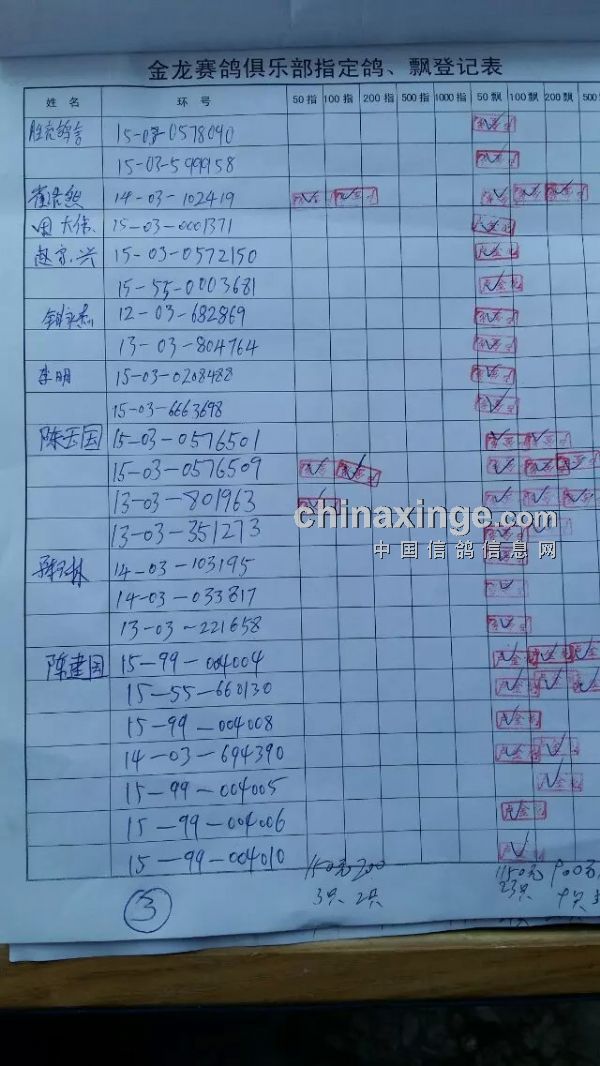 金龙赛鸽俱乐部指定鸽、飘登记表
姓 名 环 号 50 指 100 指 200 指 500 指 1000 指 50 飘 100 飘 200 飘 500
15-03-0578040
15-03-599958
14-03-102419
15-03-0001371
15-03-0572150
15-55-0003681
12-03-682869
13-03-804764
李明 15-03-0208488
15-03-6663698
陈玉国 15-03-0576501
15-03-0576509
13-03-801963
13-03-351273
14-03-103195
14-03-033817
13-03-221658
陈建国 15-99-004004
15-55-660130
15-99-004008
14-03-694390
15-99-004005
15-99-004006
15-99-004010
3只 2只 1150元 900元
23只 9只
③
chinaxinge.com
中国信鸽信息网